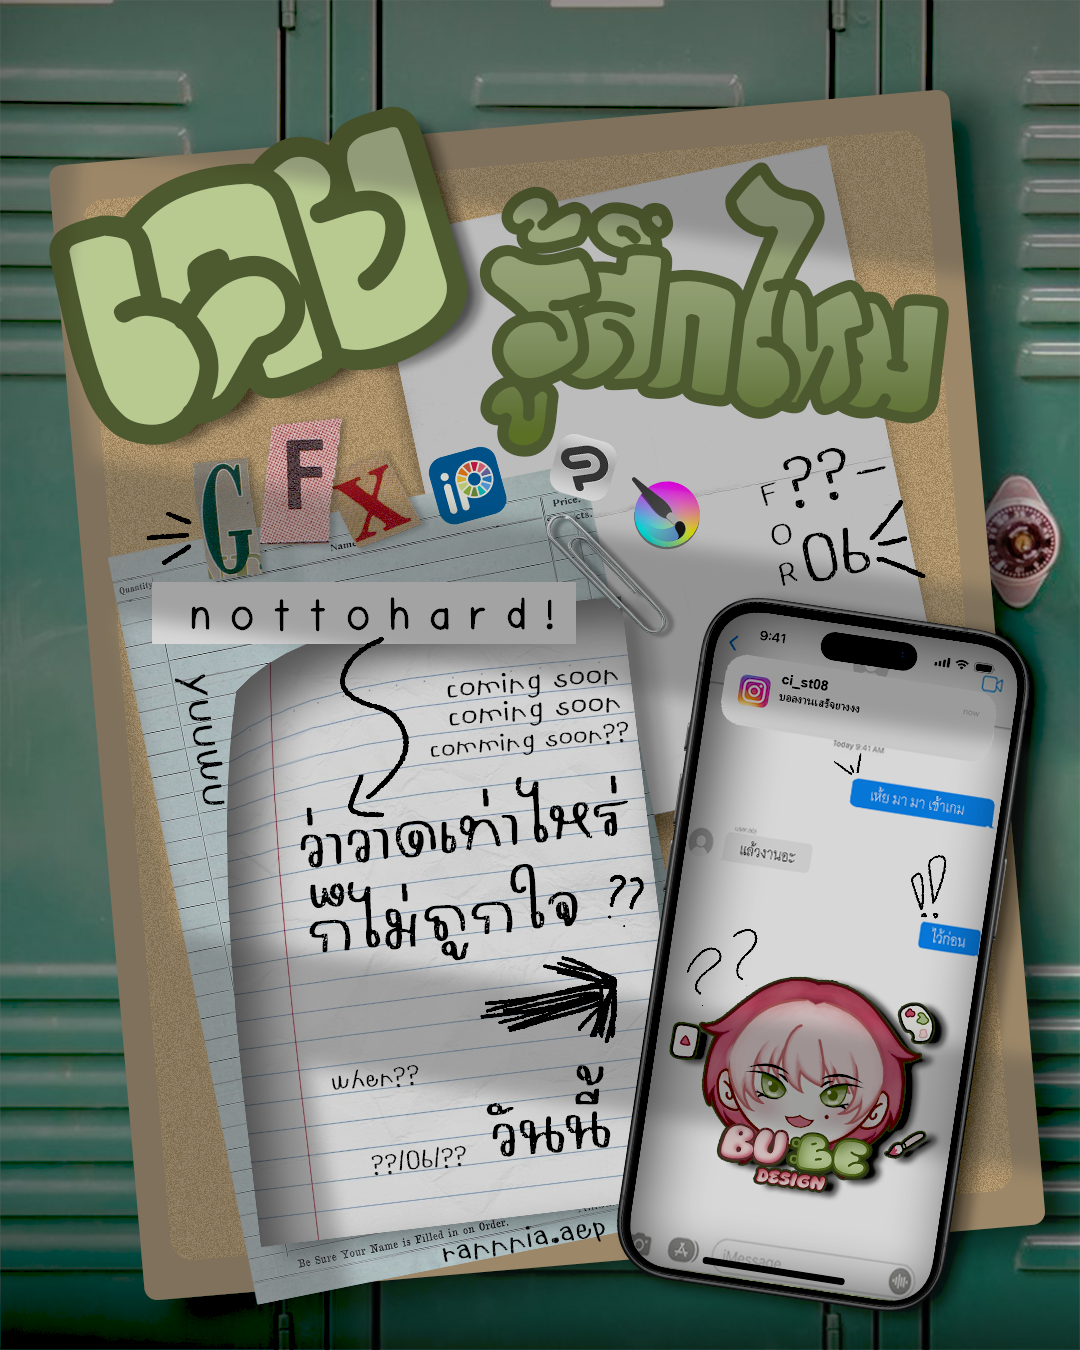 เคย
รู้สึกไหม
GFX
iP
F O R
??-
06
Price.
Name
Quantity
nottohard!
Yuuuuu
coming soon
coming soon
comming soon??
ว่าวาดเท่าไหร่
ก็ไม่ถูกใจ ??
when??
??/06/??
วันนี้
Be Sure Your Name is Filled in on Order.
rannnia.aep
9:41
ci_st08
บอลงานเสร็จยางงง
now
Today 9:41 AM
เห้ย มา มา เข้าเกม
แล้วงานอะ
!!
ไว้ก่อน
??
BU:BE
DESIGN
iMessage